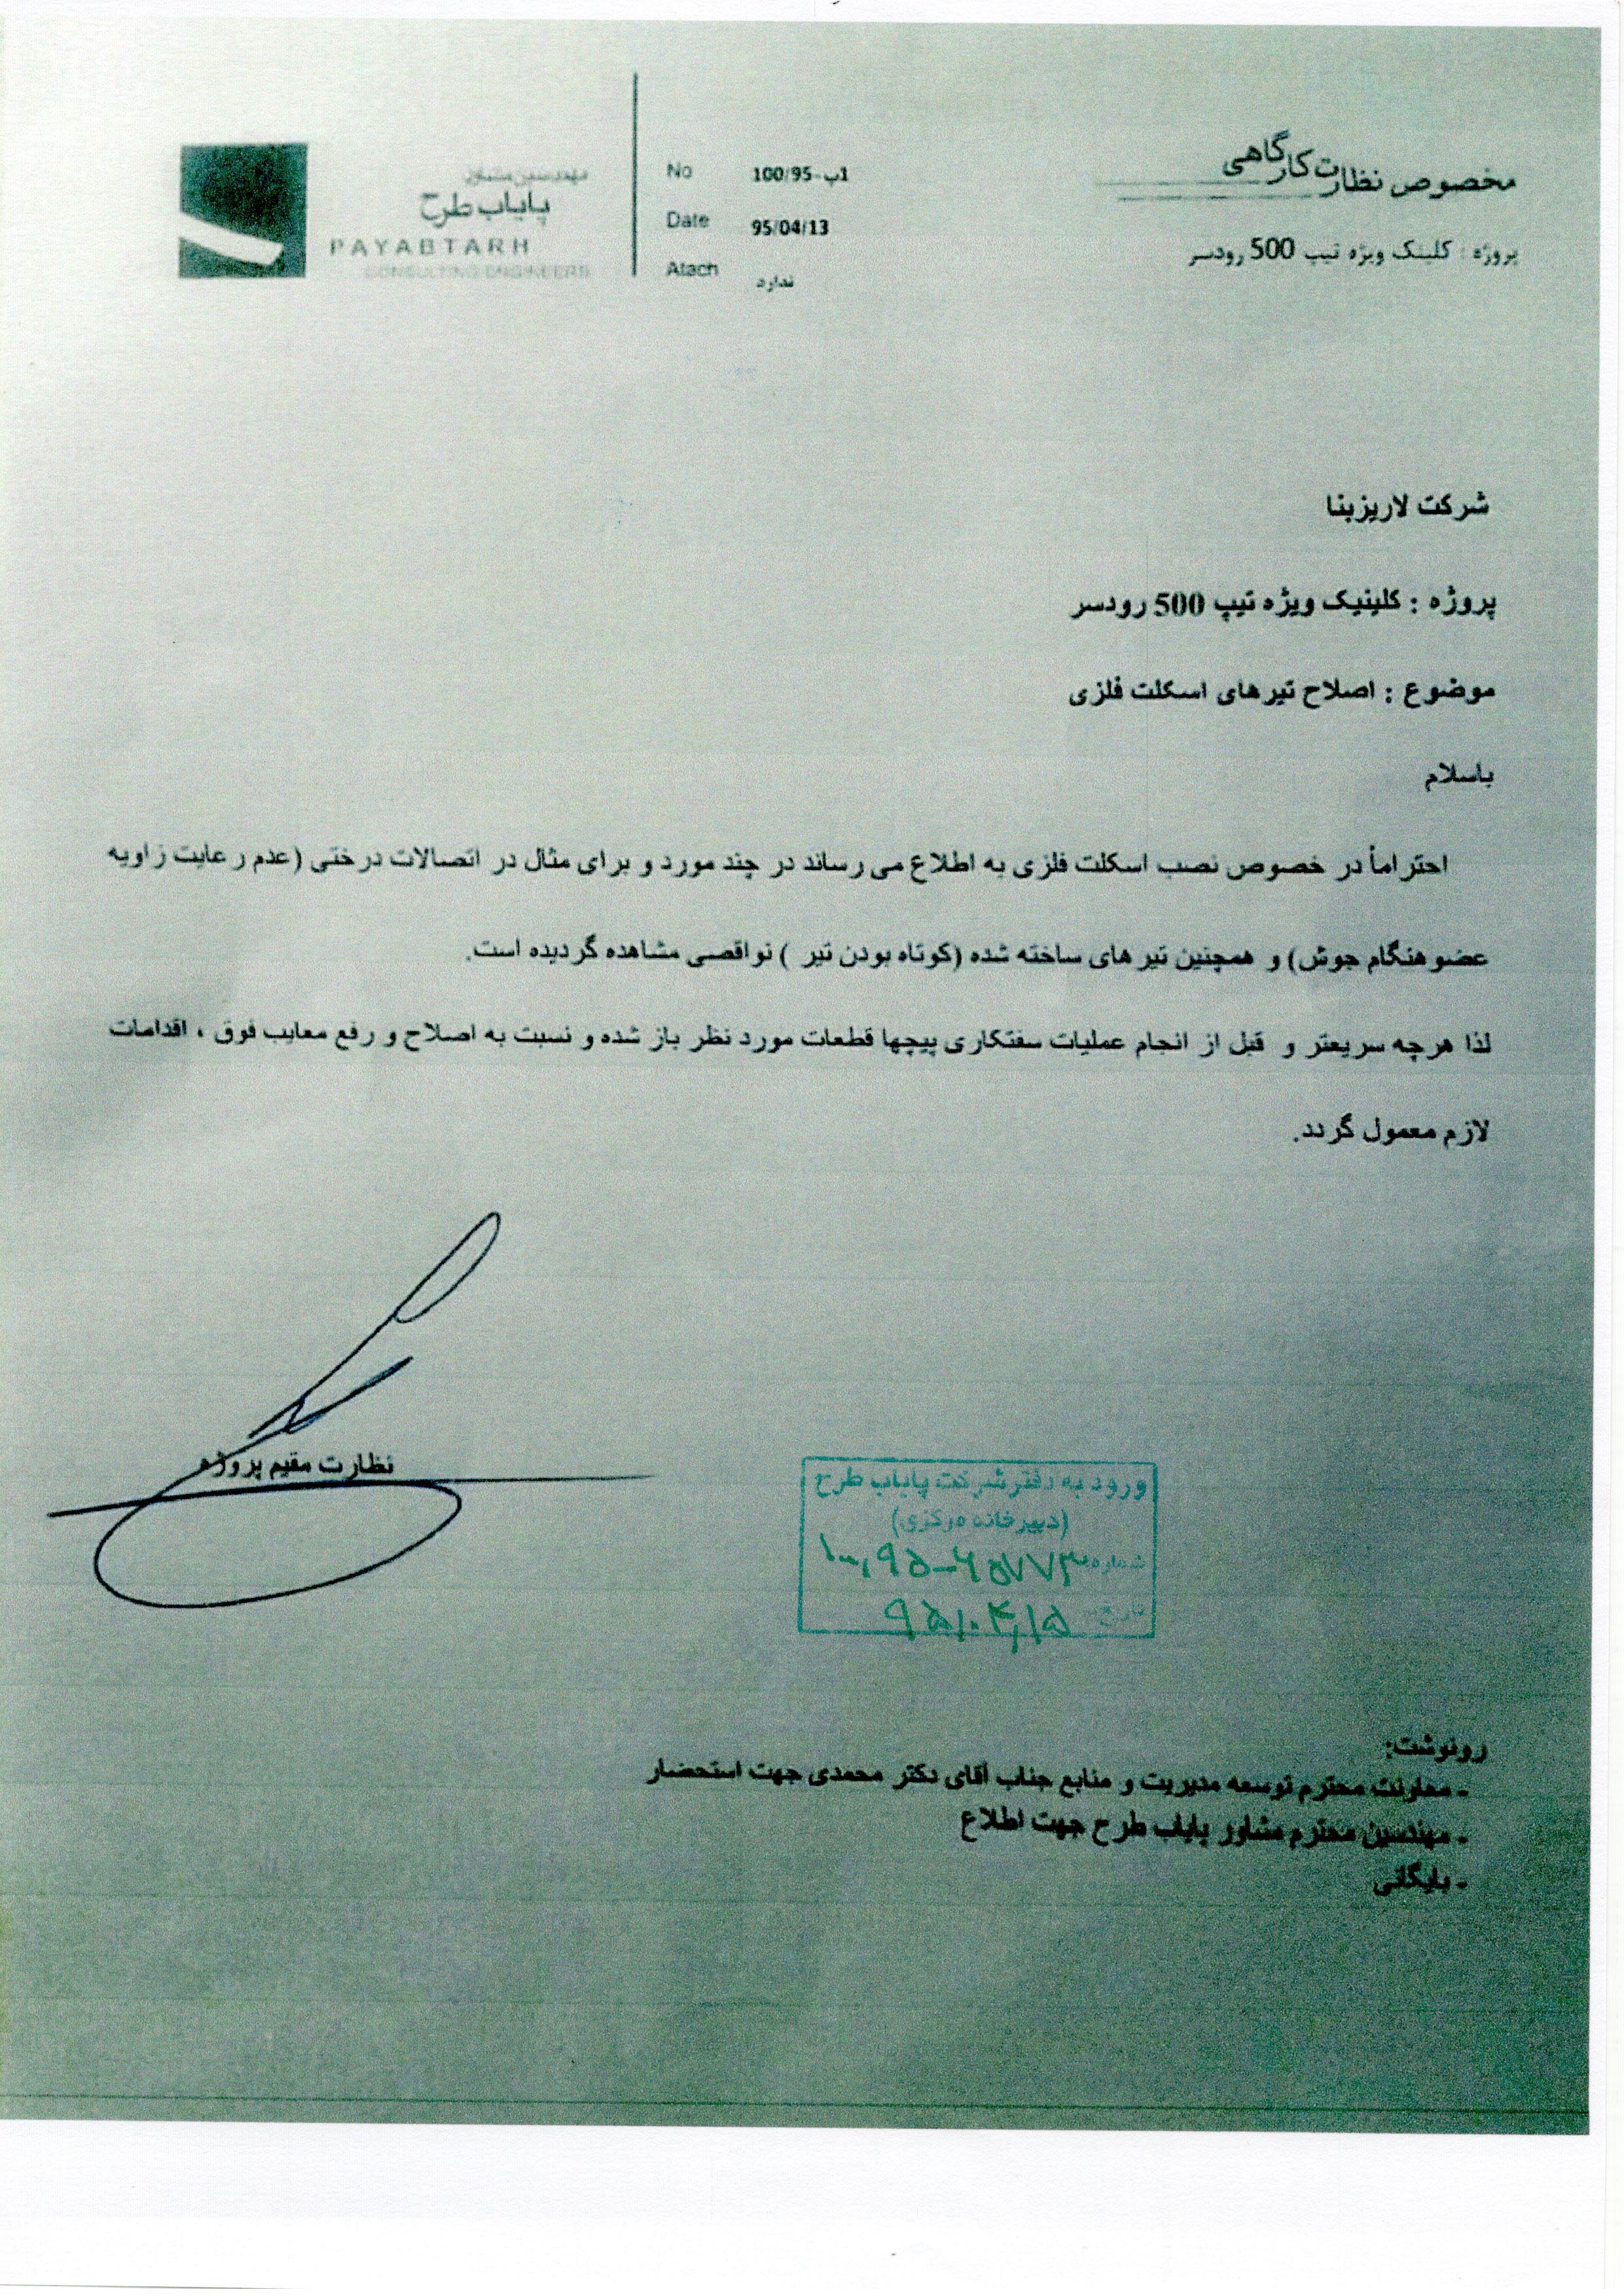 مخصوص نظارت کارگاهی
پروژه : کلینک ویژه تیپ 500 رودسر
No 100/95-1پ
Date 95/04/13
Atach ندارد
مهندسین مشاور
پایاب طرح
PAYABTARH
CONSULTING ENGINEERS
شرکت لاریزبنا
پروژه : کلینیک ویژه تیپ 500 رودسر
موضوع : اصلاح تیرهای اسکلت فلزی
باسلام
احتراماً در خصوص نصب اسکلت فلزی به اطلاع می رساند در چند مورد و برای مثال در اتصالات درختی (عدم رعایت زاویه
عضو هنگام جوش) و همچنین تیر های ساخته شده (کوتاه بودن تیر ) نواقصی مشاهده گردیده است.
لذا هرچه سریعتر و قبل از انجام عملیات سفتکاری پیچها قطعات مورد نظر باز شده و نسبت به اصلاح و رفع معایب فوق ، اقدامات
لازم معمول گردد.
نظارت مقیم پروژه
ورود به دفتر شرکت پایاب طرح
(دبیرخانه مرکزی)
شماره
تاریخ: ۹۵/۰۴/۱۵
رونوشت:
- معاونت محترم توسعه مدیریت و منابع جناب آقای دکتر محمدی جهت استحضار
- مهندسین محترم مشاور پایاب طرح جهت اطلاع
- بایگانی